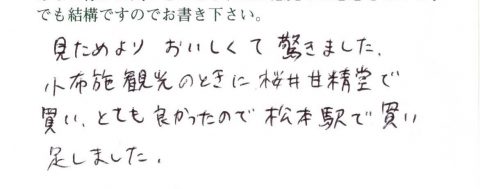 でも結構ですのでお書き下さい。
見ためより おいしくて 驚きました。
小布施観光のときに桜井甘精堂で
買い、とても良かったので松本駅で買い
足しました。